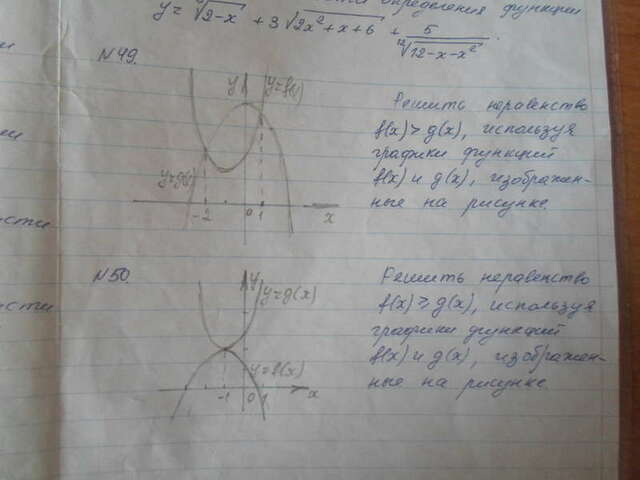 определения функции
y = √2-x + 3√2x²+x+6 + 5/¹²√12-x-x²
N49.
y
y=f(x)
y=g(x)
-2
0
1
x
Решить неравенство
f(x) > g(x), используя
графики функций
f(x) и g(x), изображен-
ные на рисунке.
N50.
y
y=g(x)
y=f(x)
-1
0
1
x
Решить неравенство
f(x) ⩾ g(x), используя
графики функций
f(x) и g(x), изображен-
ные на рисунке.